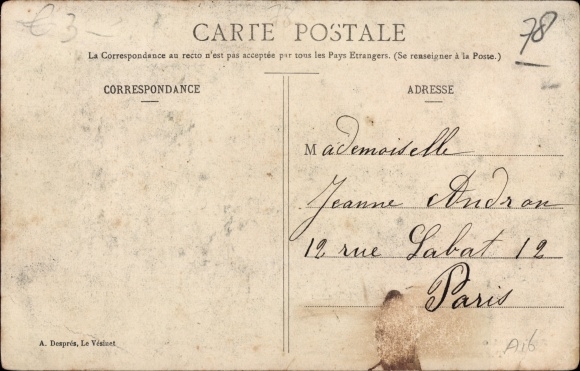 € 3-
78
CARTE POSTALE
La Correspondance au recto n'est pas acceptée par tous les Pays Etrangers. (Se renseigner à la Poste.)
CORRESPONDANCE
ADRESSE
Mademoiselle
Jeanne Andron
12 rue Labat 12
Paris
A. Després, Le Vésinet